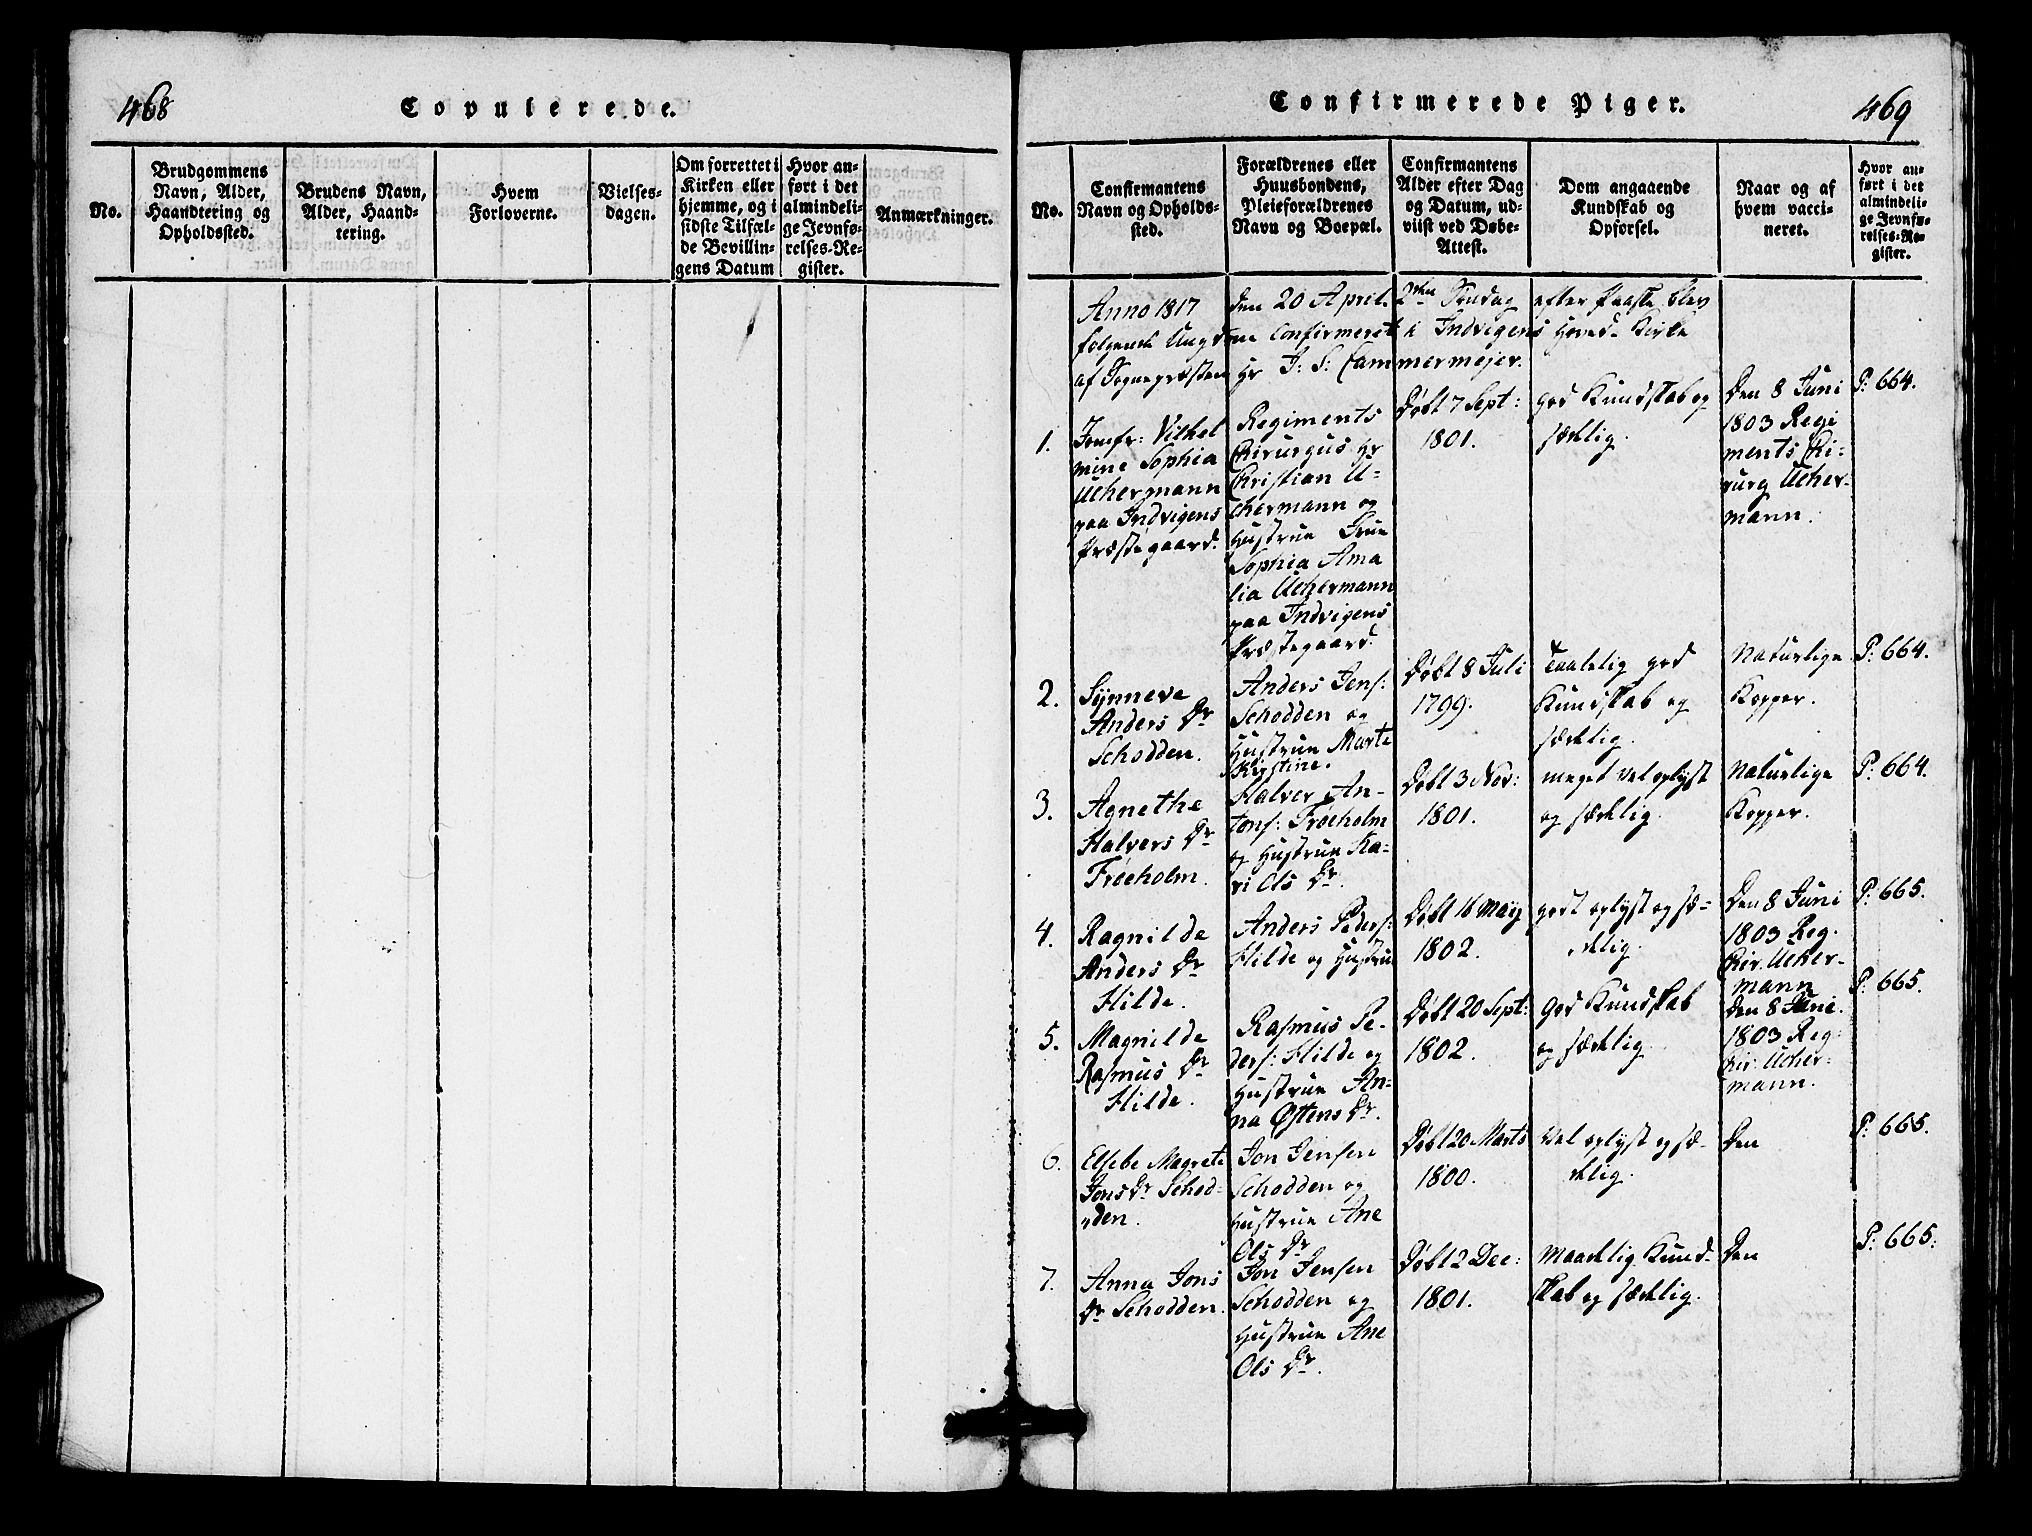 468
Copulerede.
No.
Brudgommens
Navn, Alder,
Haandtering og
Opholdssted.
Brudens Navn,
Alder, Haand-
tering.
Hvem
Forloverne.
Vielses-
dagen.
Om forrettet i
Kirken eller
hjemme, og i
sidste Tilfæl-
de Bevillin-
gens Datum
Hvor an-
ført i det
almindeli-
ge Jevnfø-
relses-Re-
gister.
Anmærkninger.
Confirmerede Piger.
469
No.
Confirmantens
Navn og Opholds-
sted.
Forældrenes eller
Huusbondens,
Pleieforældrenes
Navn og Boepæl.
Confirmantens
Alder efter Dag
og Datum, ud-
viist ved Døbe-
Attest.
Dom angaaende
Kundskab og
Opførsel.
Naar og af
hvem vacci-
neret.
Hvor an-
ført i det
almindeli-
ge Jevnfø-
relses-Re-
gister.
Anno 1817 den 20 April 2den Søndag efter Paaske blev
følgende Ungdom Confirmeret i Indvigens Hoved-Kirke
af Sognepræsten Hr J: S: Cammermejer.
1.
Jomfr: Vilhel
mine Sophia
Uchermann
paa Indvigens
Præstegaard.
Regiments
Chirurgus Hr
Christian U-
chermann og
Hustrue Frue
Sophia Ama
lia Uchermann
paa Indvigens
Præstegaard.
Døbt 7 Sept:
1801.
god Kundskab og
sædelig.
Den 8 Juni
1803 Regi
ments Chi-
rurg Ucher-
mann.
P: 664.
2.
Synneve
Anders Dr
Schodden.
Anders Jens:
Schodden og
Hustrue Marte
Kristine.
Døbt 8 Juli
1799.
Taalelig god
Kundskab og
sædelig.
Naturlige
Kopper.
P: 664.
3.
Agnethe
Halvers Dr
Frøeholm.
Halver An-
tons: Frøeholm
og Hustrue Ka-
ri Ols Dr.
Døbt 3 Nov:
1801.
meget vel oplyst
og sædelig.
Naturlige
Kopper.
P: 664.
4.
Ragnilde
Anders Dr
Hilde.
Anders Peders:
Hilde og Hustrue
Døbt 16 Maÿ
1802.
godt oplyst og sæ-
delig.
Den 8 Juni
1803 Reg.
Chir. Ucher-
mann
P: 665.
5.
Magnilde
Rasmus Dr
Hilde.
Rasmus Pe-
ders: Hilde og
Hustrue An-
na Østens Dr.
Døbt 20 Sept:
1802.
God Kundskab
og sædelig.
Den 8 Junie.
1803 Reg:
Chir. Ucher-
mann.
P: 665.
6.
Elsebe Magrete
Jons Dr Schod-
den.
Jon Jensen
Schodden og
Hustrue Ane
Ols Dr
Døbt 20 Marts
1800.
Vel oplyst og sæ-
delig.
Den
P: 665.
7.
Anna Jons
Dr Schodden.
Jon Jensen
Schodden og
Hustrue Ane
Ols Dr.
Døbt 2 Dec:
1801.
Maadelig Kund-
skab og sædelig.
Den
P: 665.